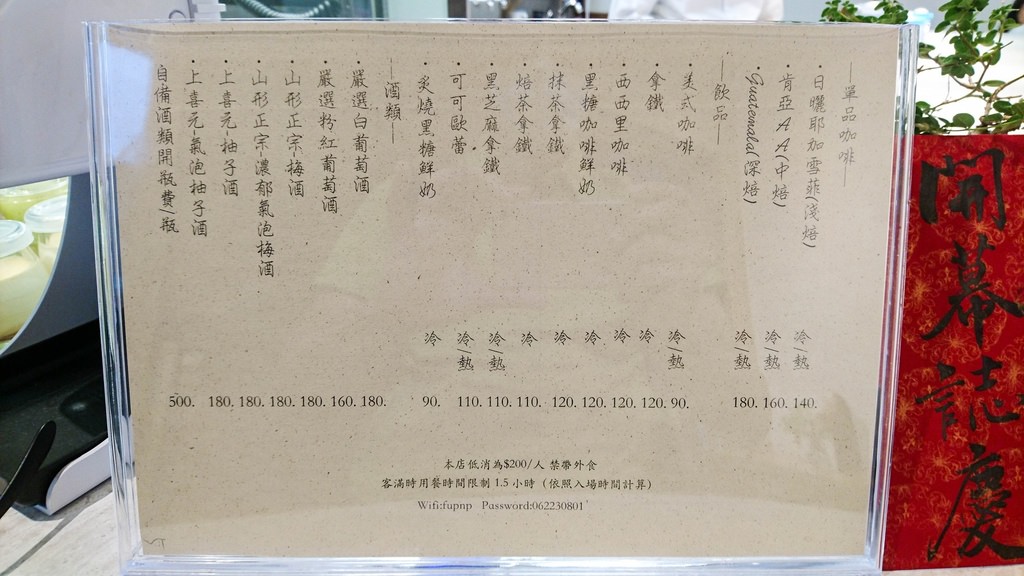 —單品咖啡—
·日曬耶加雪菲(淺焙) 冷/熱 140.
·肯亞AA(中焙) 冷/熱 160.
·Guatemala(深焙) 冷/熱 180.
—飲品—
·美式咖啡 冷/熱 90.
·拿鐵 冷 120.
·西西里咖啡 冷 120.
·黑糖咖啡鮮奶 冷 120.
·抹茶拿鐵 冷 120.
·焙茶拿鐵 冷 110.
·黑芝麻拿鐵 冷/熱 110.
·可可歐蕾 冷/熱 110.
·炙燒黑糖鮮奶 冷 90.
—酒類—
·嚴選白葡萄酒 180.
·嚴選粉紅葡萄酒 160.
·山形正宗-梅酒 180.
·山形正宗-濃郁氣泡梅酒 180.
·上喜元-柚子酒 180.
·上喜元-氣泡柚子酒 180.
自備酒類開瓶費/瓶 500.
本店低消為$200/人 禁帶外食
客滿時用餐時間限制 1.5 小時（依照入場時間計算）
Wifi:fupnp Password:062230801
開幕誌慶